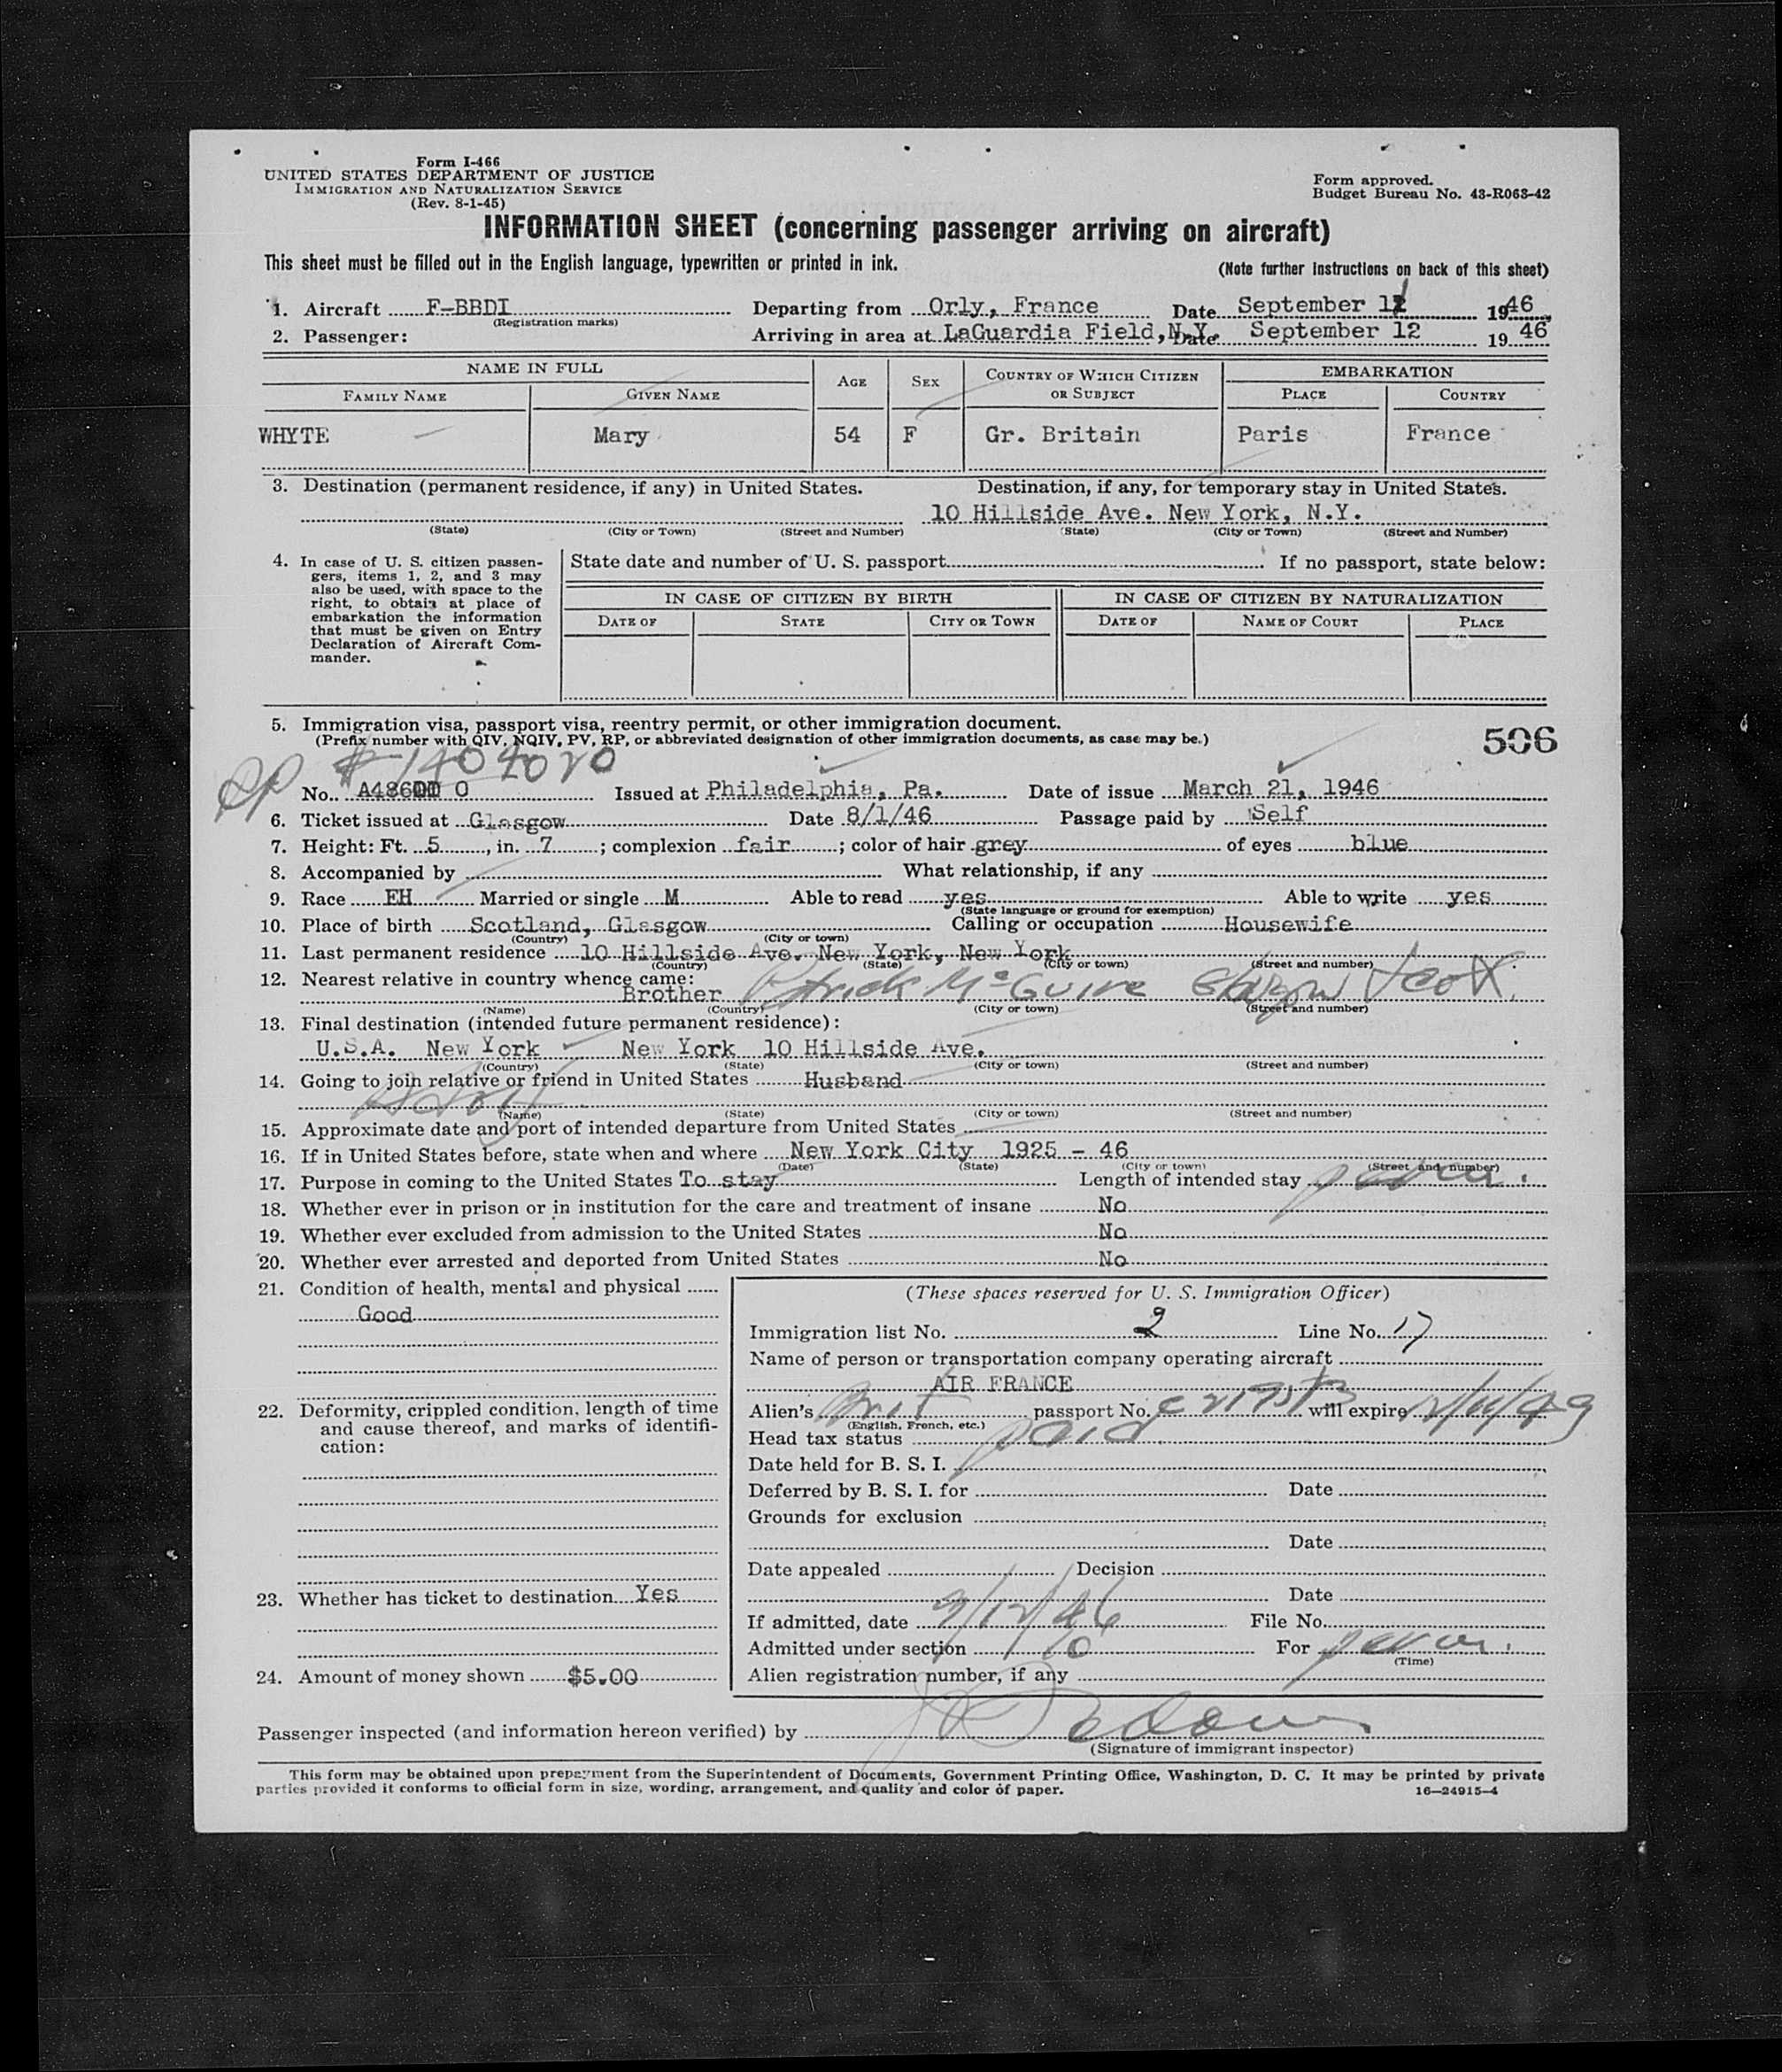 Form I-466
UNITED STATES DEPARTMENT OF JUSTICE
IMMIGRATION AND NATURALIZATION SERVICE
(Rev. 8-1-45)
Form approved.
Budget Bureau No. 43-R063-42
INFORMATION SHEET (concerning passenger arriving on aircraft)
This sheet must be filled out in the English language, typewritten or printed in ink.
(Note further instructions on back of this sheet)
1. Aircraft F-BBDI Departing from Orly, France Date September 11 1946
(Registration marks)
2. Passenger: Arriving in area at LaGuardia Field, N.Y. Date September 12 1946
NAME IN FULL AGE SEX COUNTRY OF WHICH CITIZEN OR SUBJECT EMBARKATION
FAMILY NAME GIVEN NAME PLACE COUNTRY
WHYTE Mary 54 F Gr. Britain Paris France
3. Destination (permanent residence, if any) in United States. Destination, if any, for temporary stay in United States.
10 Hillside Ave. New York, N.Y.
(State) (City or Town) (Street and Number) (State) (City or Town) (Street and Number)
4. In case of U. S. citizen passengers, items 1, 2, and 3 may also be used, with space to the right, to obtain at place of embarkation the information that must be given on Entry Declaration of Aircraft Commander.
State date and number of U. S. passport If no passport, state below:
IN CASE OF CITIZEN BY BIRTH IN CASE OF CITIZEN BY NATURALIZATION
DATE OF STATE CITY OR TOWN DATE OF NAME OF COURT PLACE
5. Immigration visa, passport visa, reentry permit, or other immigration document.
(Prefix number with QIV, NQIV, PV, RP, or abbreviated designation of other immigration documents, as case may be.)
506
RP # 1404020
No. Issued at Philadelphia, Pa. Date of issue March 21, 1946
6. Ticket issued at Glasgow Date 8/1/46 Passage paid by Self
7. Height: Ft. 5, in. 7; complexion fair; color of hair grey of eyes blue
8. Accompanied by What relationship, if any
9. Race EH Married or single M Able to read yes Able to write yes
(State language or ground for exemption)
10. Place of birth Scotland, Glasgow Calling or occupation Housewife
(Country) (City or town)
11. Last permanent residence 10 Hillside Ave. New York, New York
(Country) (State) (City or town) (Street and number)
12. Nearest relative in country whence came:
Brother Patrick McGuire Glasgow Scot.
(Name) (Country) (City or town) (Street and number)
13. Final destination (intended future permanent residence):
U.S.A. New York New York 10 Hillside Ave.
(Country) (State) (City or town) (Street and number)
14. Going to join relative or friend in United States Husband
(Name) (State) (City or town) (Street and number)
15. Approximate date and port of intended departure from United States
16. If in United States before, state when and where New York City 1925 - 46
(Date) (State) (City or town) (Street and number)
17. Purpose in coming to the United States To stay Length of intended stay perm.
18. Whether ever in prison or in institution for the care and treatment of insane No
19. Whether ever excluded from admission to the United States No
20. Whether ever arrested and deported from United States No
21. Condition of health, mental and physical
Good
22. Deformity, crippled condition, length of time and cause thereof, and marks of identification:
23. Whether has ticket to destination Yes
24. Amount of money shown $5.00
(These spaces reserved for U. S. Immigration Officer)
Immigration list No. 2 Line No. 17
Name of person or transportation company operating aircraft
AIR FRANCE
Alien's Brit passport No. will expire
(English, French, etc.)
Head tax status paid
Date held for B. S. I.
Deferred by B. S. I. for Date
Grounds for exclusion
Date
Date appealed Decision
Date
If admitted, date 9/12/46 File No.
Admitted under section 10 For perm.
(Time)
Alien registration number, if any
Passenger inspected (and information hereon verified) by
(Signature of immigrant inspector)
This form may be obtained upon prepayment from the Superintendent of Documents, Government Printing Office, Washington, D. C. It may be printed by private
parties provided it conforms to official form in size, wording, arrangement, and quality and color of paper. 16—24915-4